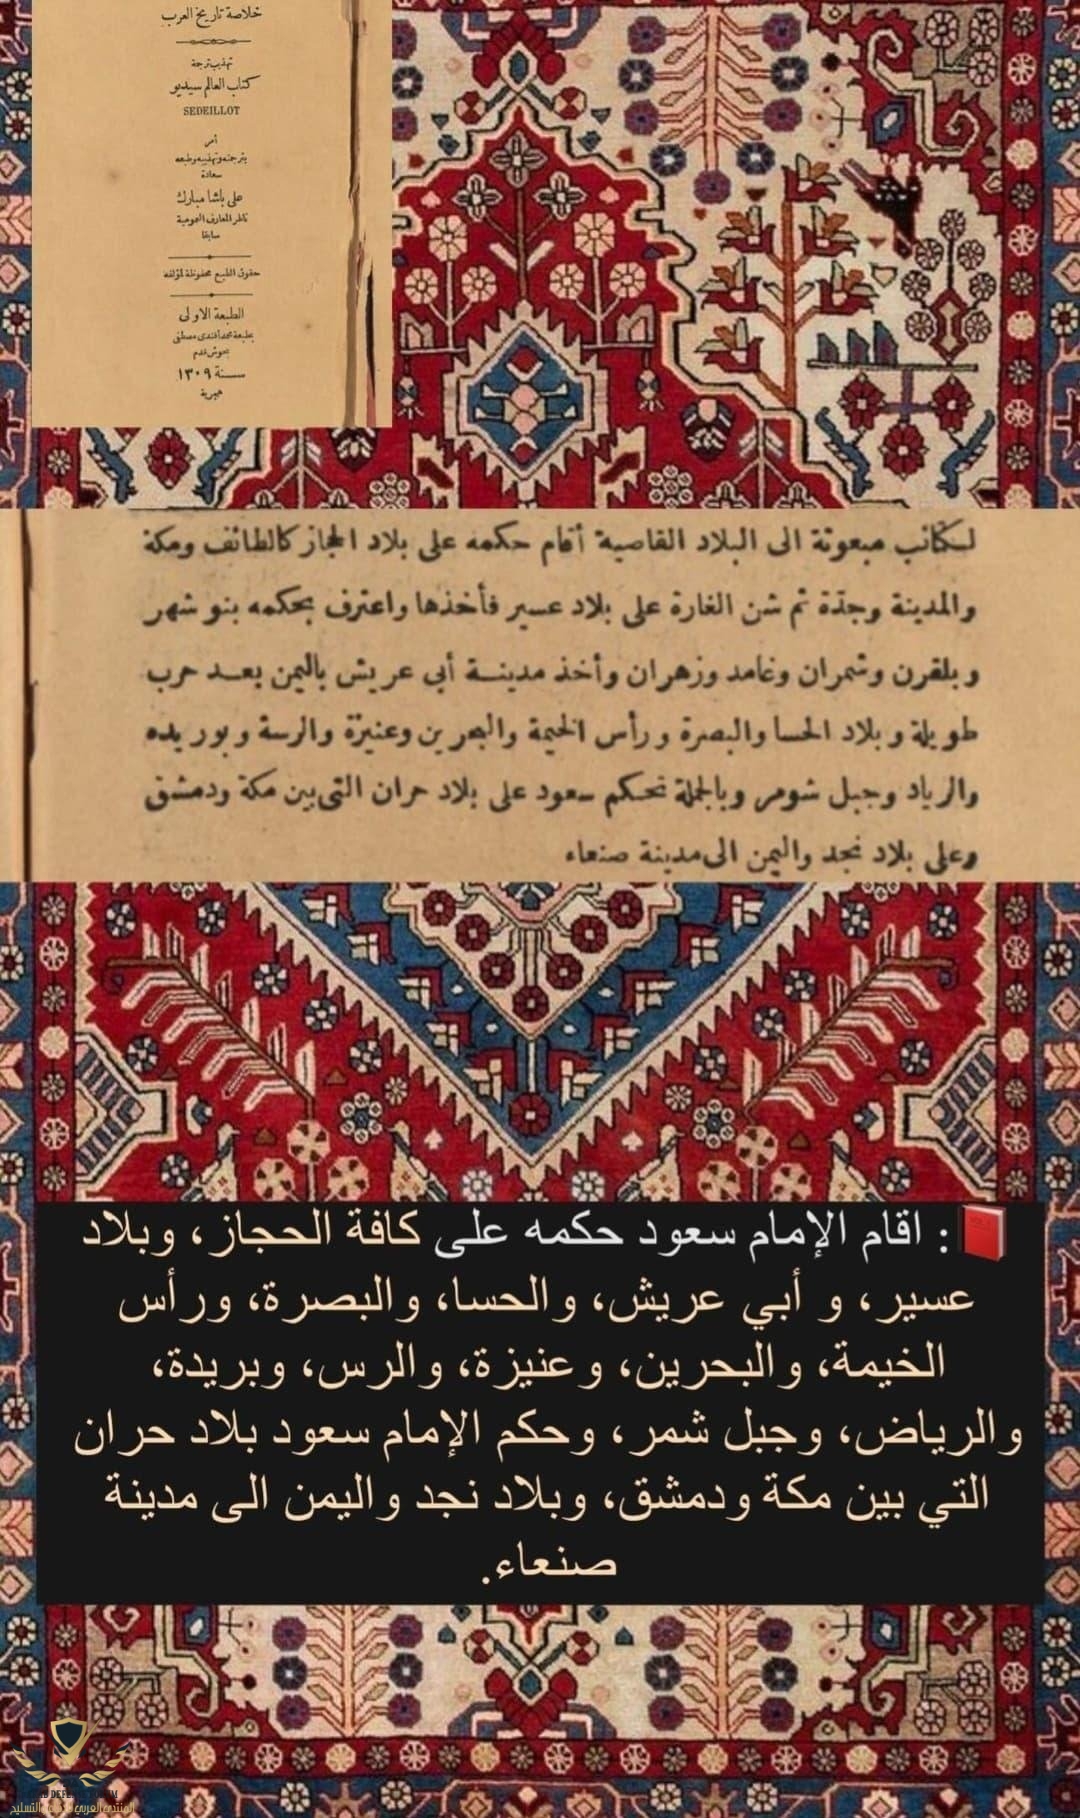 خلاصة تاريخ العرب
تهذيب ترجمة
كتاب العالم سيديو
SEDEILLOT
أمر
بترجمته وتهذيبه وطبعه
سعادة
على باشا مبارك
ناظر المعارف العمومية
سابقا
حقوق الطبع محفوظة لمؤلفه
الطبعة الاولى
بمطبعة محمد أفندى مصطفى
بحوش قدم
سنة ١٣٠٩
هجرية
لكتائب مبعوثة الى البلاد القاصية أقام حكمه على بلاد الحجاز كالطائف ومكة
والمدينة وجدّة ثم شن الغارة على بلاد عسير فأخذها واعترف بحكمه بنو شهر
وبلقرن وشمران وغامد وزهران وأخذ مدينة أبى عريش باليمن بعد حرب
طويلة وبلاد الحسا والبصرة ورأس الخيمة والبحرين وعنيزة والرسة وبوريده
والرياد وجبل شومر وبالجملة تحكم سعود على بلاد حران التى بين مكة ودمشق
وعلى بلاد نجد واليمن الى مدينة صنعاء
: اقام الإمام سعود حكمه على كافة الحجاز، وبلاد
عسير، و أبي عريش، والحسا، والبصرة، ورأس
الخيمة، والبحرين، وعنيزة، والرس، وبريدة،
والرياض، وجبل شمر، وحكم الإمام سعود بلاد حران
التي بين مكة ودمشق، وبلاد نجد واليمن الى مدينة
صنعاء.